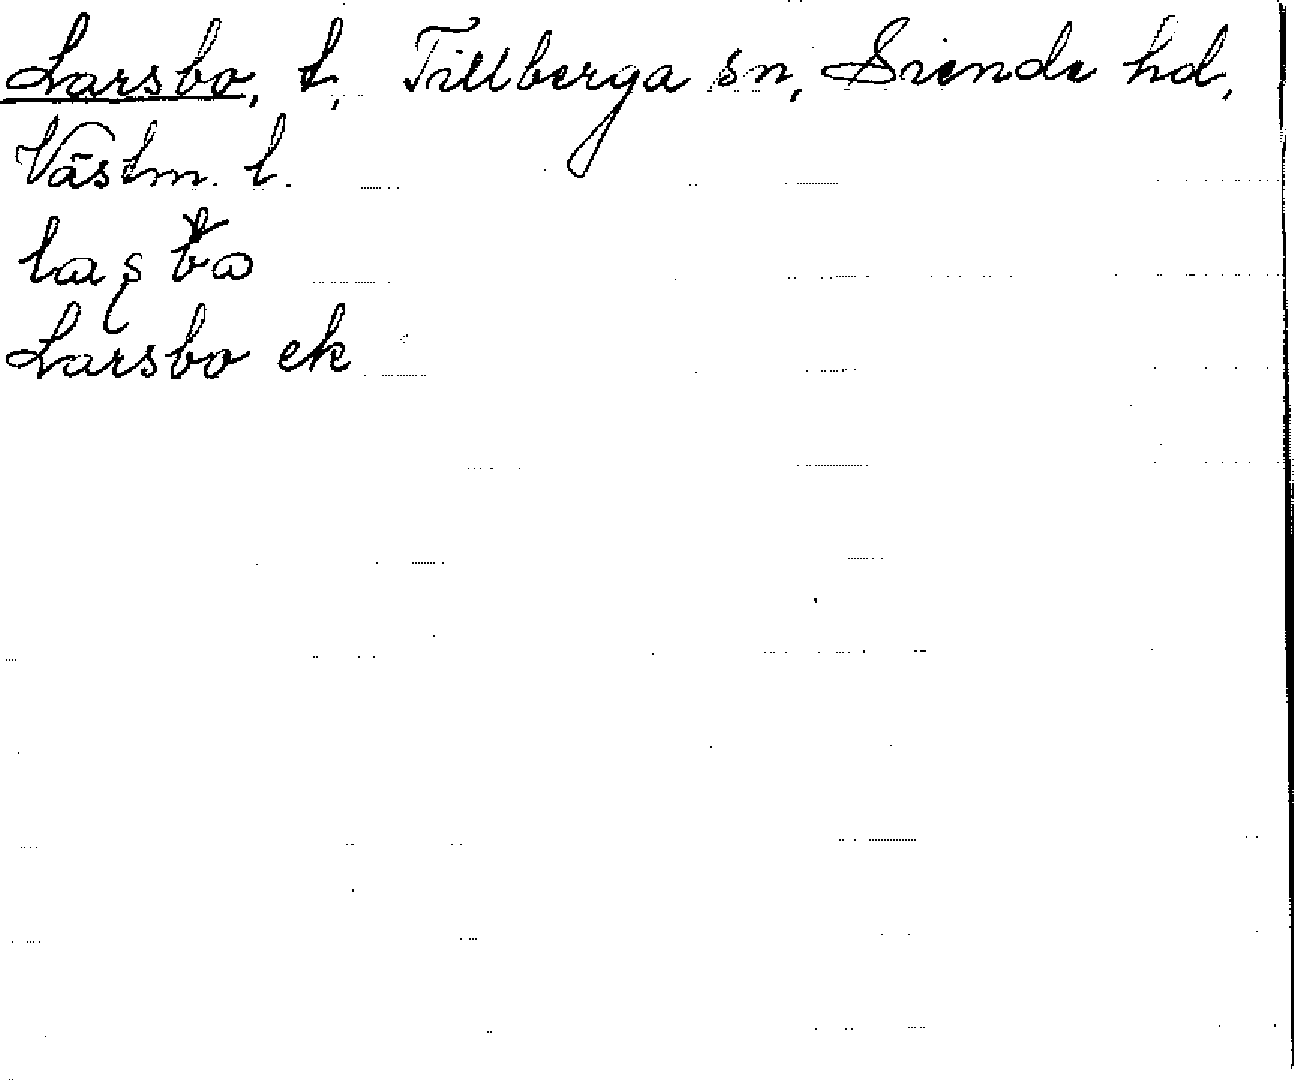 Larsbo, t, Tillberga sn, Siende hd,
Västm. l.
Larsbo ek